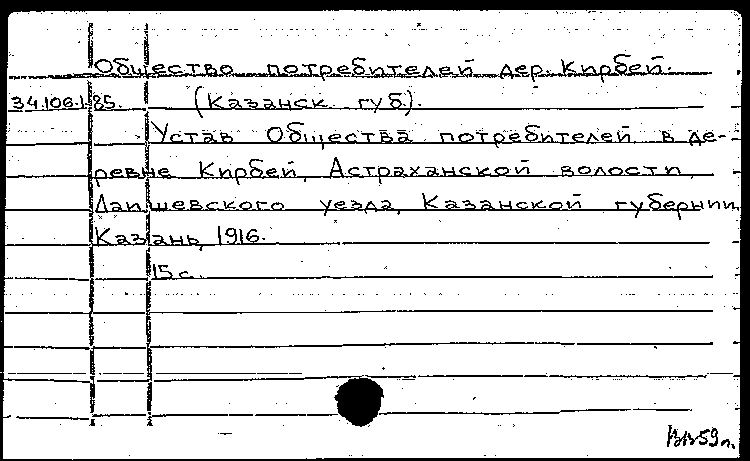 Общество потребителей дер. Кирбей.
34.106.1.85. (Казанск. губ.).
Устав Общества потребителей в де-
ревне Кирбей, Астраханской волости,
Лаишевского уезда, Казанской губернии.
Казань, 1916.
15 с.